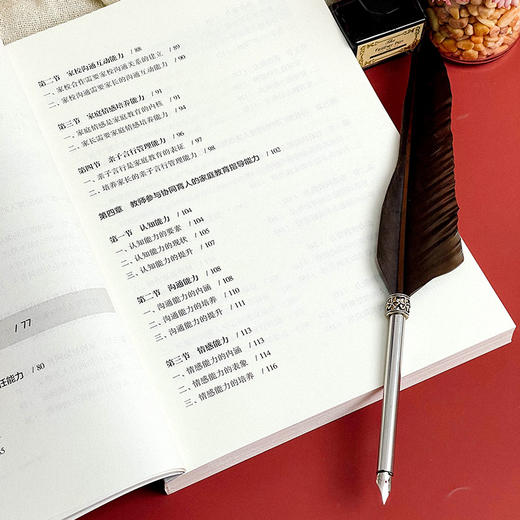 第二节　家校沟通互动能力　/ 88
一、家校合作需要家校沟通关系的建立　/ 89
二、家校沟通需要家长的沟通互动能力　/ 90
第三节　家庭情感培养能力　/ 91
一、家庭情感是家庭教育的内核　/ 91
二、家长需要家庭情感培养能力　/ 94
第四节　亲子言行管理能力　/ 96
一、亲子言行是家庭教育的表征　/ 97
二、培养家长的亲子言行管理能力　/ 98
第四章　教师参与协同育人的家庭教育指导能力　/ 102
第一节　认知能力　/ 104
一、认知能力的要素　/ 104
二、认知能力的现状　/ 105
三、认知能力的提升　/ 107
第二节　沟通能力　/ 108
一、沟通能力的内涵　/ 108
二、沟通能力的培养　/ 109
三、沟通能力的提升　/ 111
第三节　情感能力　/ 113
一、情感能力的内涵　/ 113
二、情感能力的表象　/ 114
三、情感能力的培养　/ 116
/ 77
任能力　/ 80